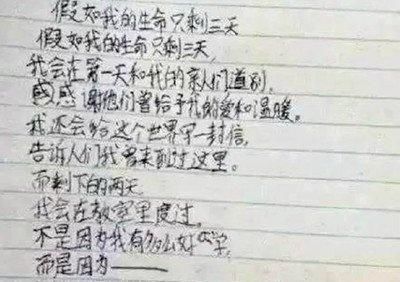 假如我的生命只剩三天
假如我的生命只剩三天,
我会在第一天和我的亲人们道别,
感感谢他们曾给予我的爱和温暖。
我还会给这个世界写一封信,
告诉人们我曾来到过这里。
而剩下的两天
我会在教室里度过。
不是因为我有多么好学,
而是因为——